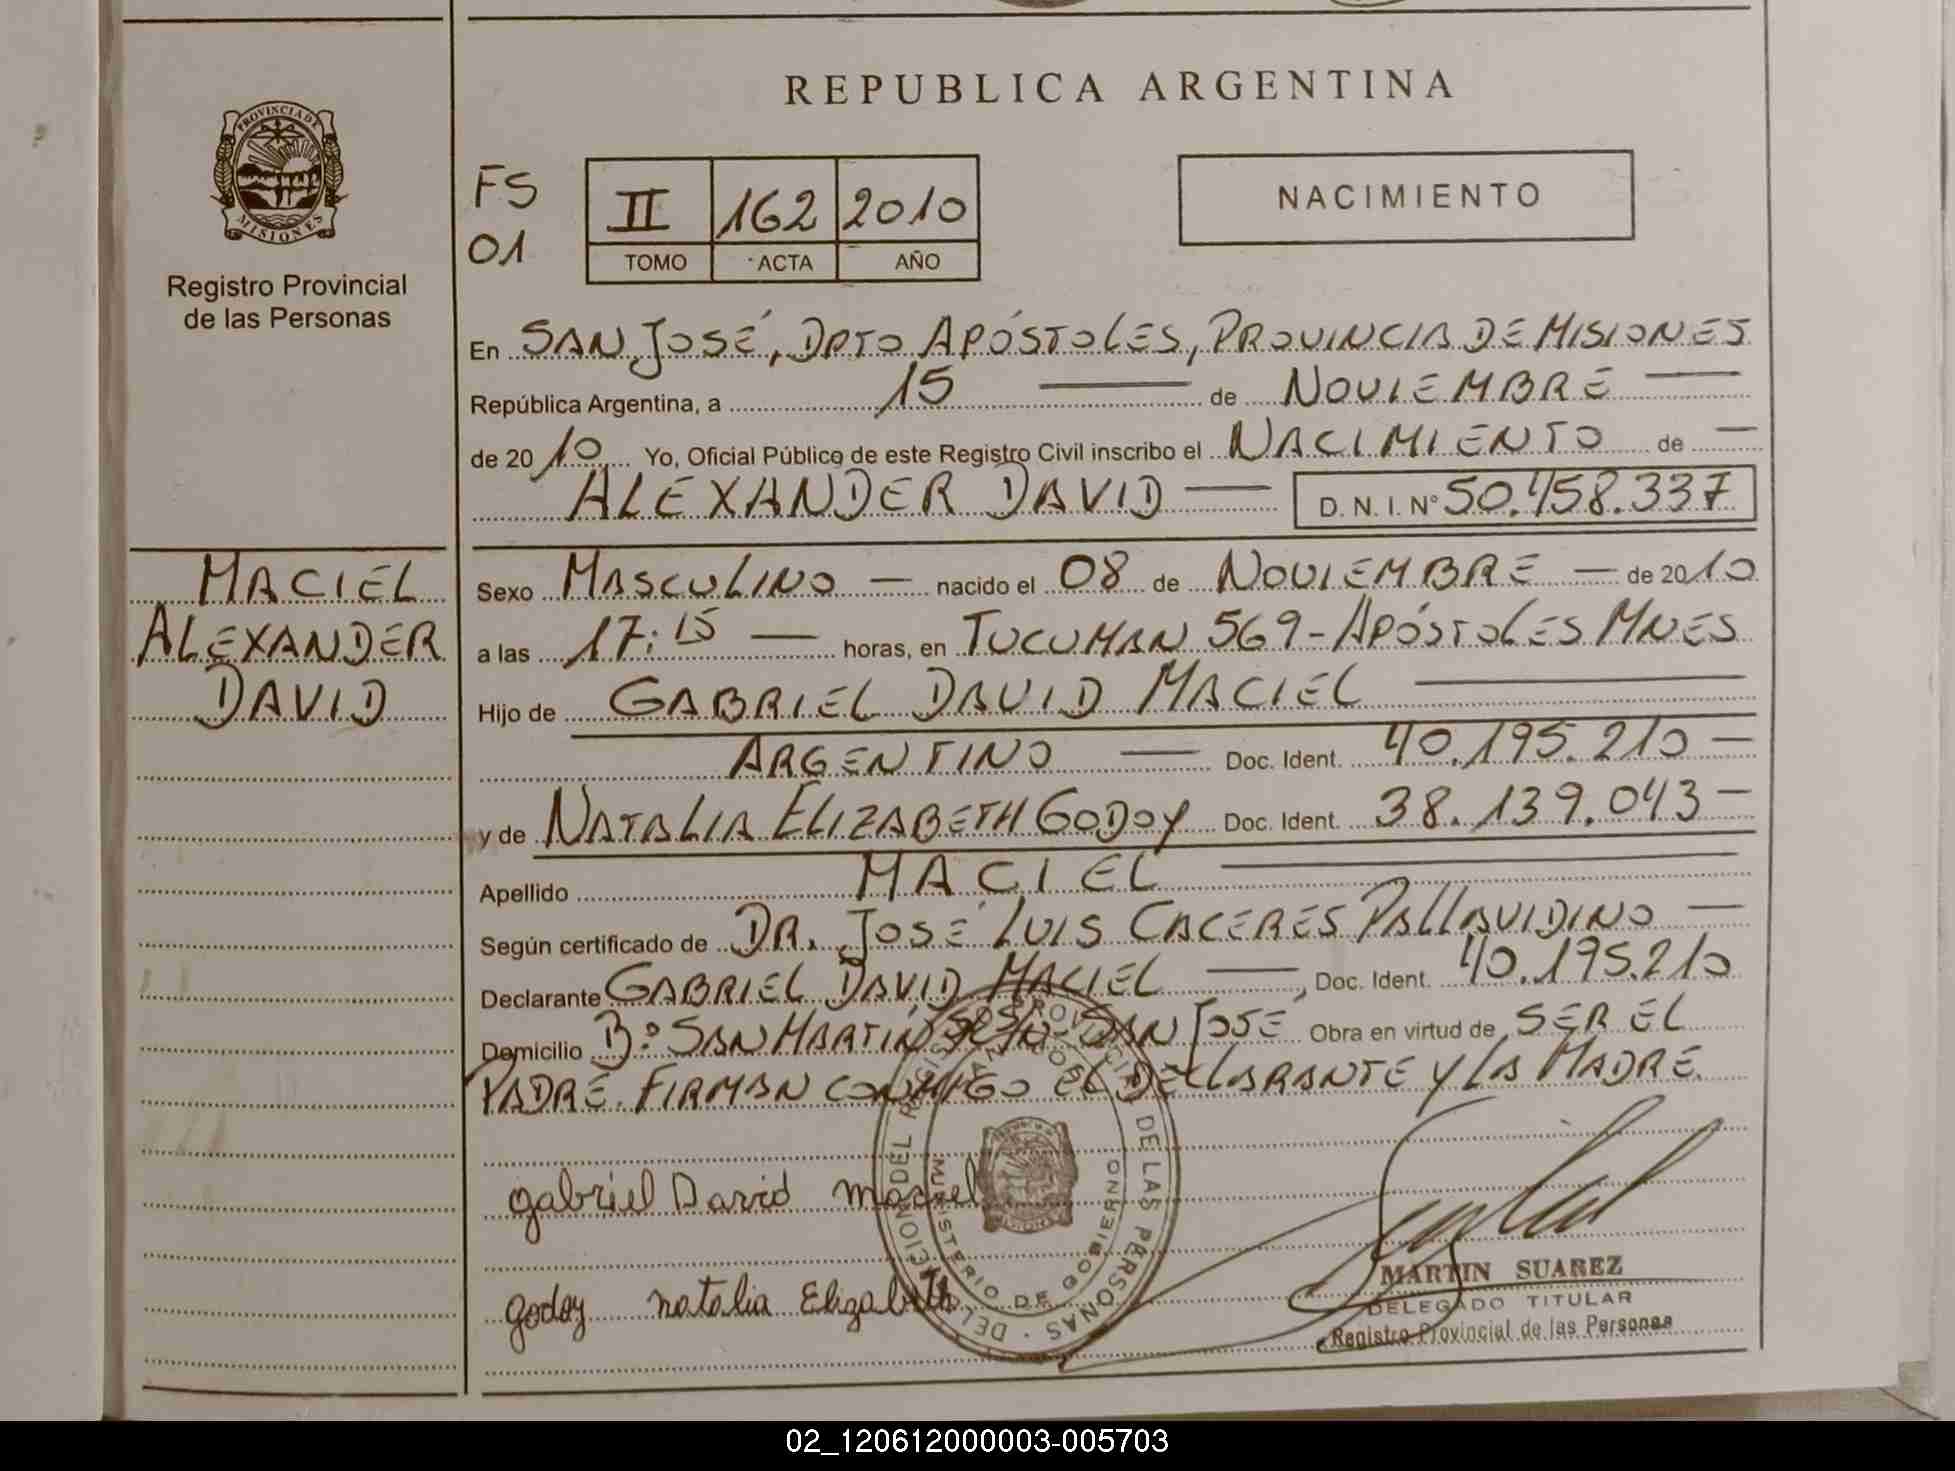 REPUBLICA ARGENTINA
PROVINCIA DE
MISIONES
Registro Provincial
de las Personas
FS
01
II 162 2010
TOMO ACTA AÑO
NACIMIENTO
En SAN JOSÉ, DPTO APÓSTOLES, PROVINCIA DE MISIONES
República Argentina, a 15 de NOVIEMBRE
de 2010 Yo, Oficial Público de este Registro Civil inscribo el NACIMIENTO de
ALEXANDER DAVID D. N. I. N° 50.458.337
MACIEL
ALEXANDER
DAVID
Sexo MASCULINO nacido el 08 de NOVIEMBRE de 2010
a las 17:15 horas, en TUCUMAN 569-APÓSTOLES MNES
Hijo de GABRIEL DAVID MACIEL
ARGENTINO Doc. Ident. 40.195.210
y de NATALIA ELIZABETH GODOY Doc. Ident. 38.139.043
Apellido MACIEL
Según certificado de DR. JOSÉ LUIS CACERES PALLAVIDINO
Declarante GABRIEL DAVID MACIEL, Doc. Ident. 40.195.210
Domicilio B° SAN MARTIN SAN JOSE Obra en virtud de SER EL
PADRE. FIRMAN CONMIGO EL DECLARANTE Y LA MADRE.
gabriel David maciel
godoy natalia Elizabeth
DE LAS PERSONAS
MINISTERIO DE GOBIERNO
MARTIN SUAREZ
DELEGADO TITULAR
Registro Provincial de las Personas
02_120612000003-005703